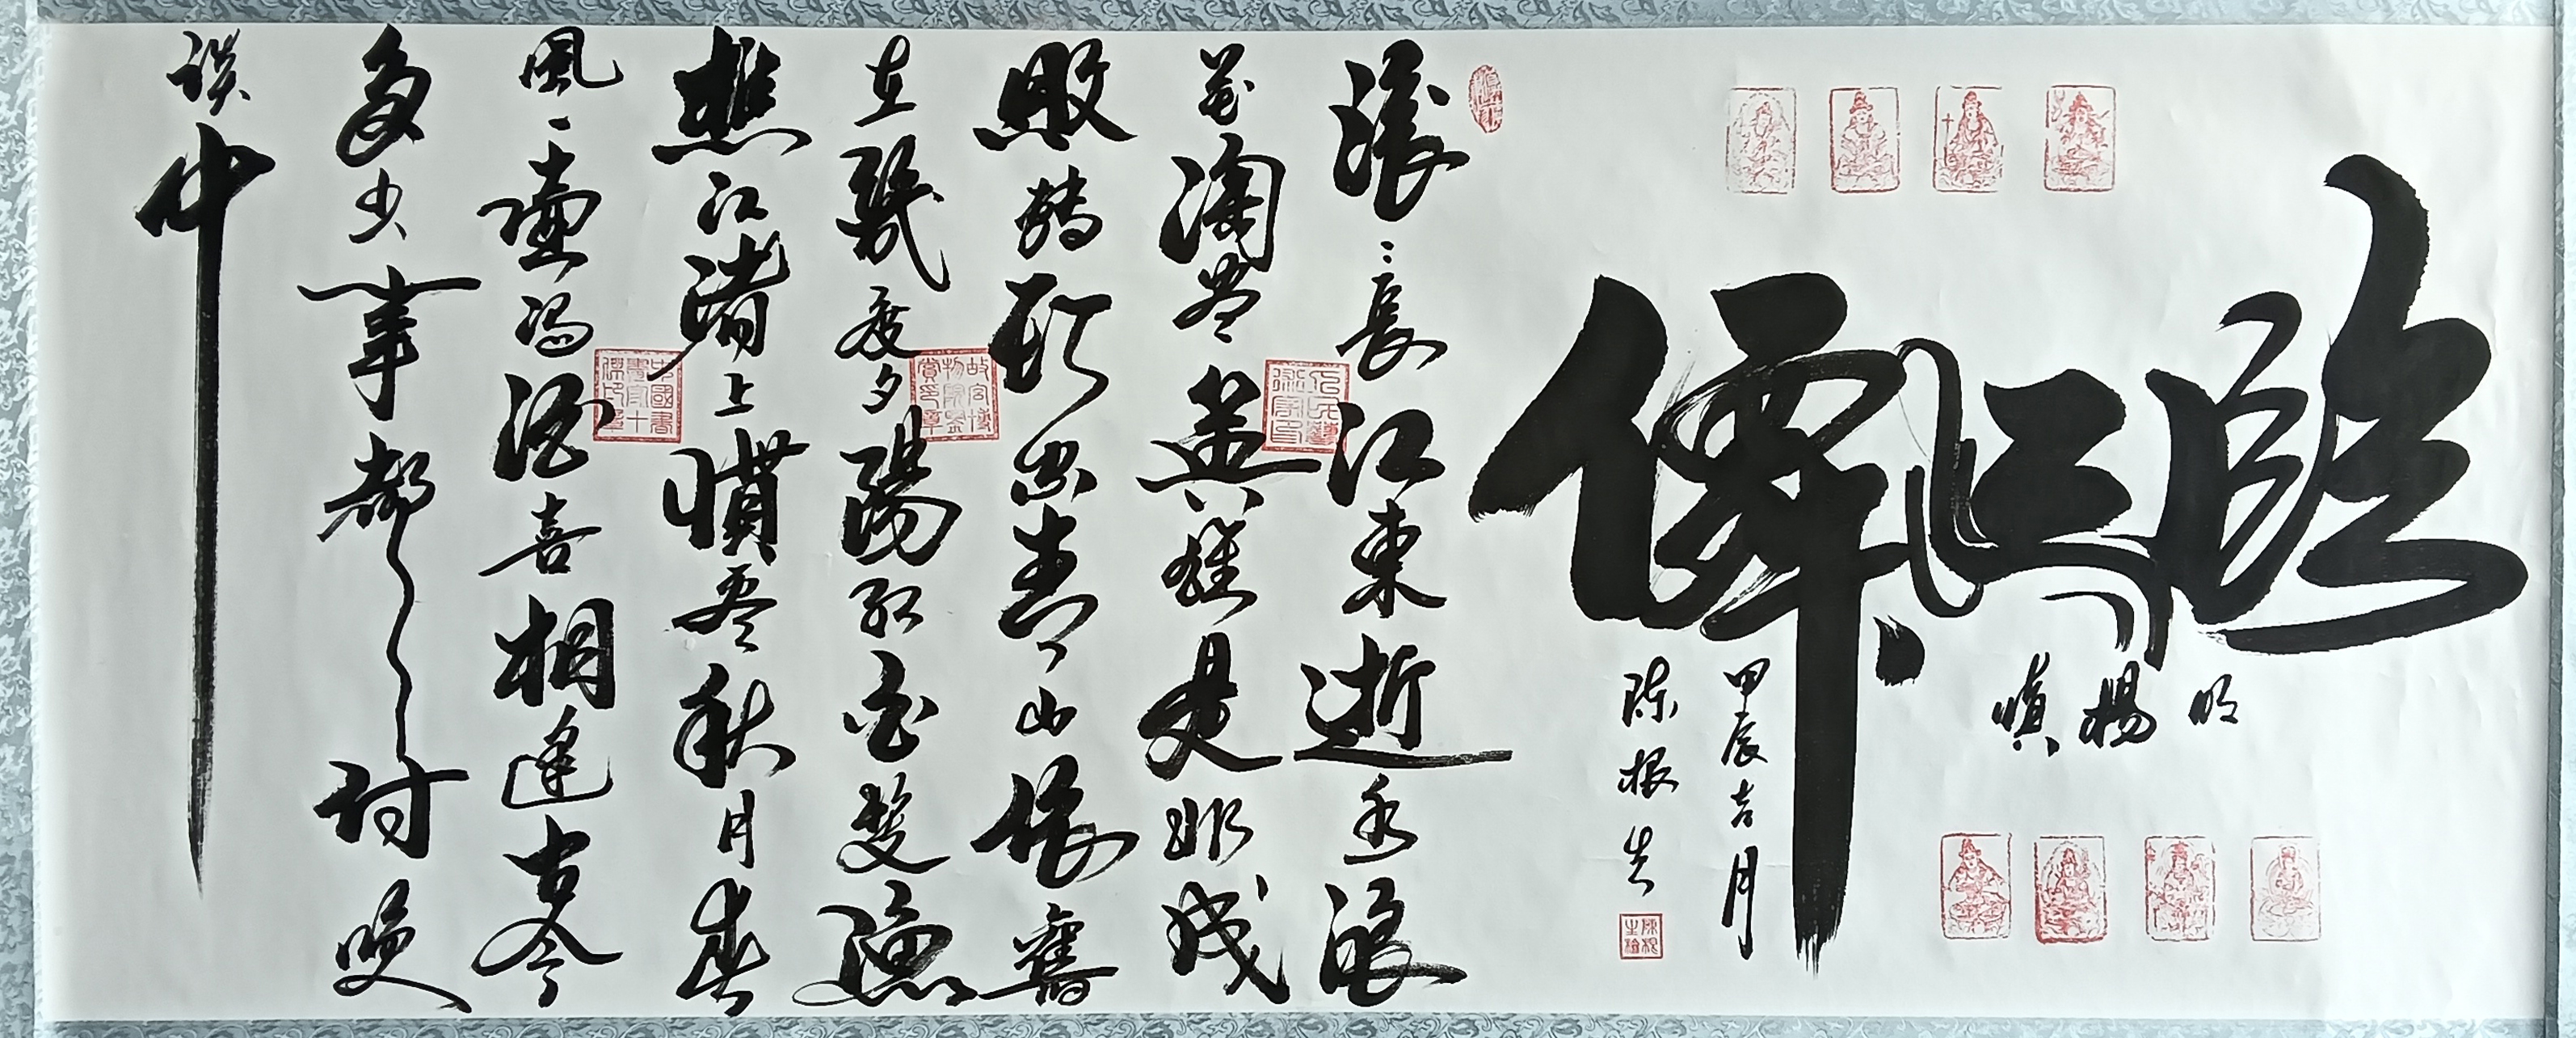 臨江僊
明
楊
慎
甲辰吉月
陳根生
滾〻長江東逝水浪
花淘尽英雄是非成
敗轉頭空青山依舊
在幾度夕陽紅白髮漁
樵江渚上慣看秋月春
風一壺濁酒喜相逢古今
多少事都付咲
談中